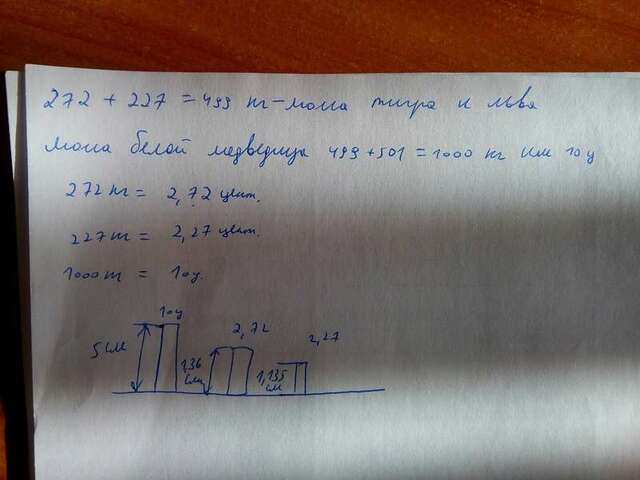 272 + 227 = 499 кг - масса тигра и льва
Масса белой медведица 499 + 501 = 1000 кг или 10 ц
272 кг = 2,72 цент.
227 кг = 2,27 цент.
1000 кг = 10 ц.
10 ц
5 см
2,72
1,36 см
2,27
1,135 см